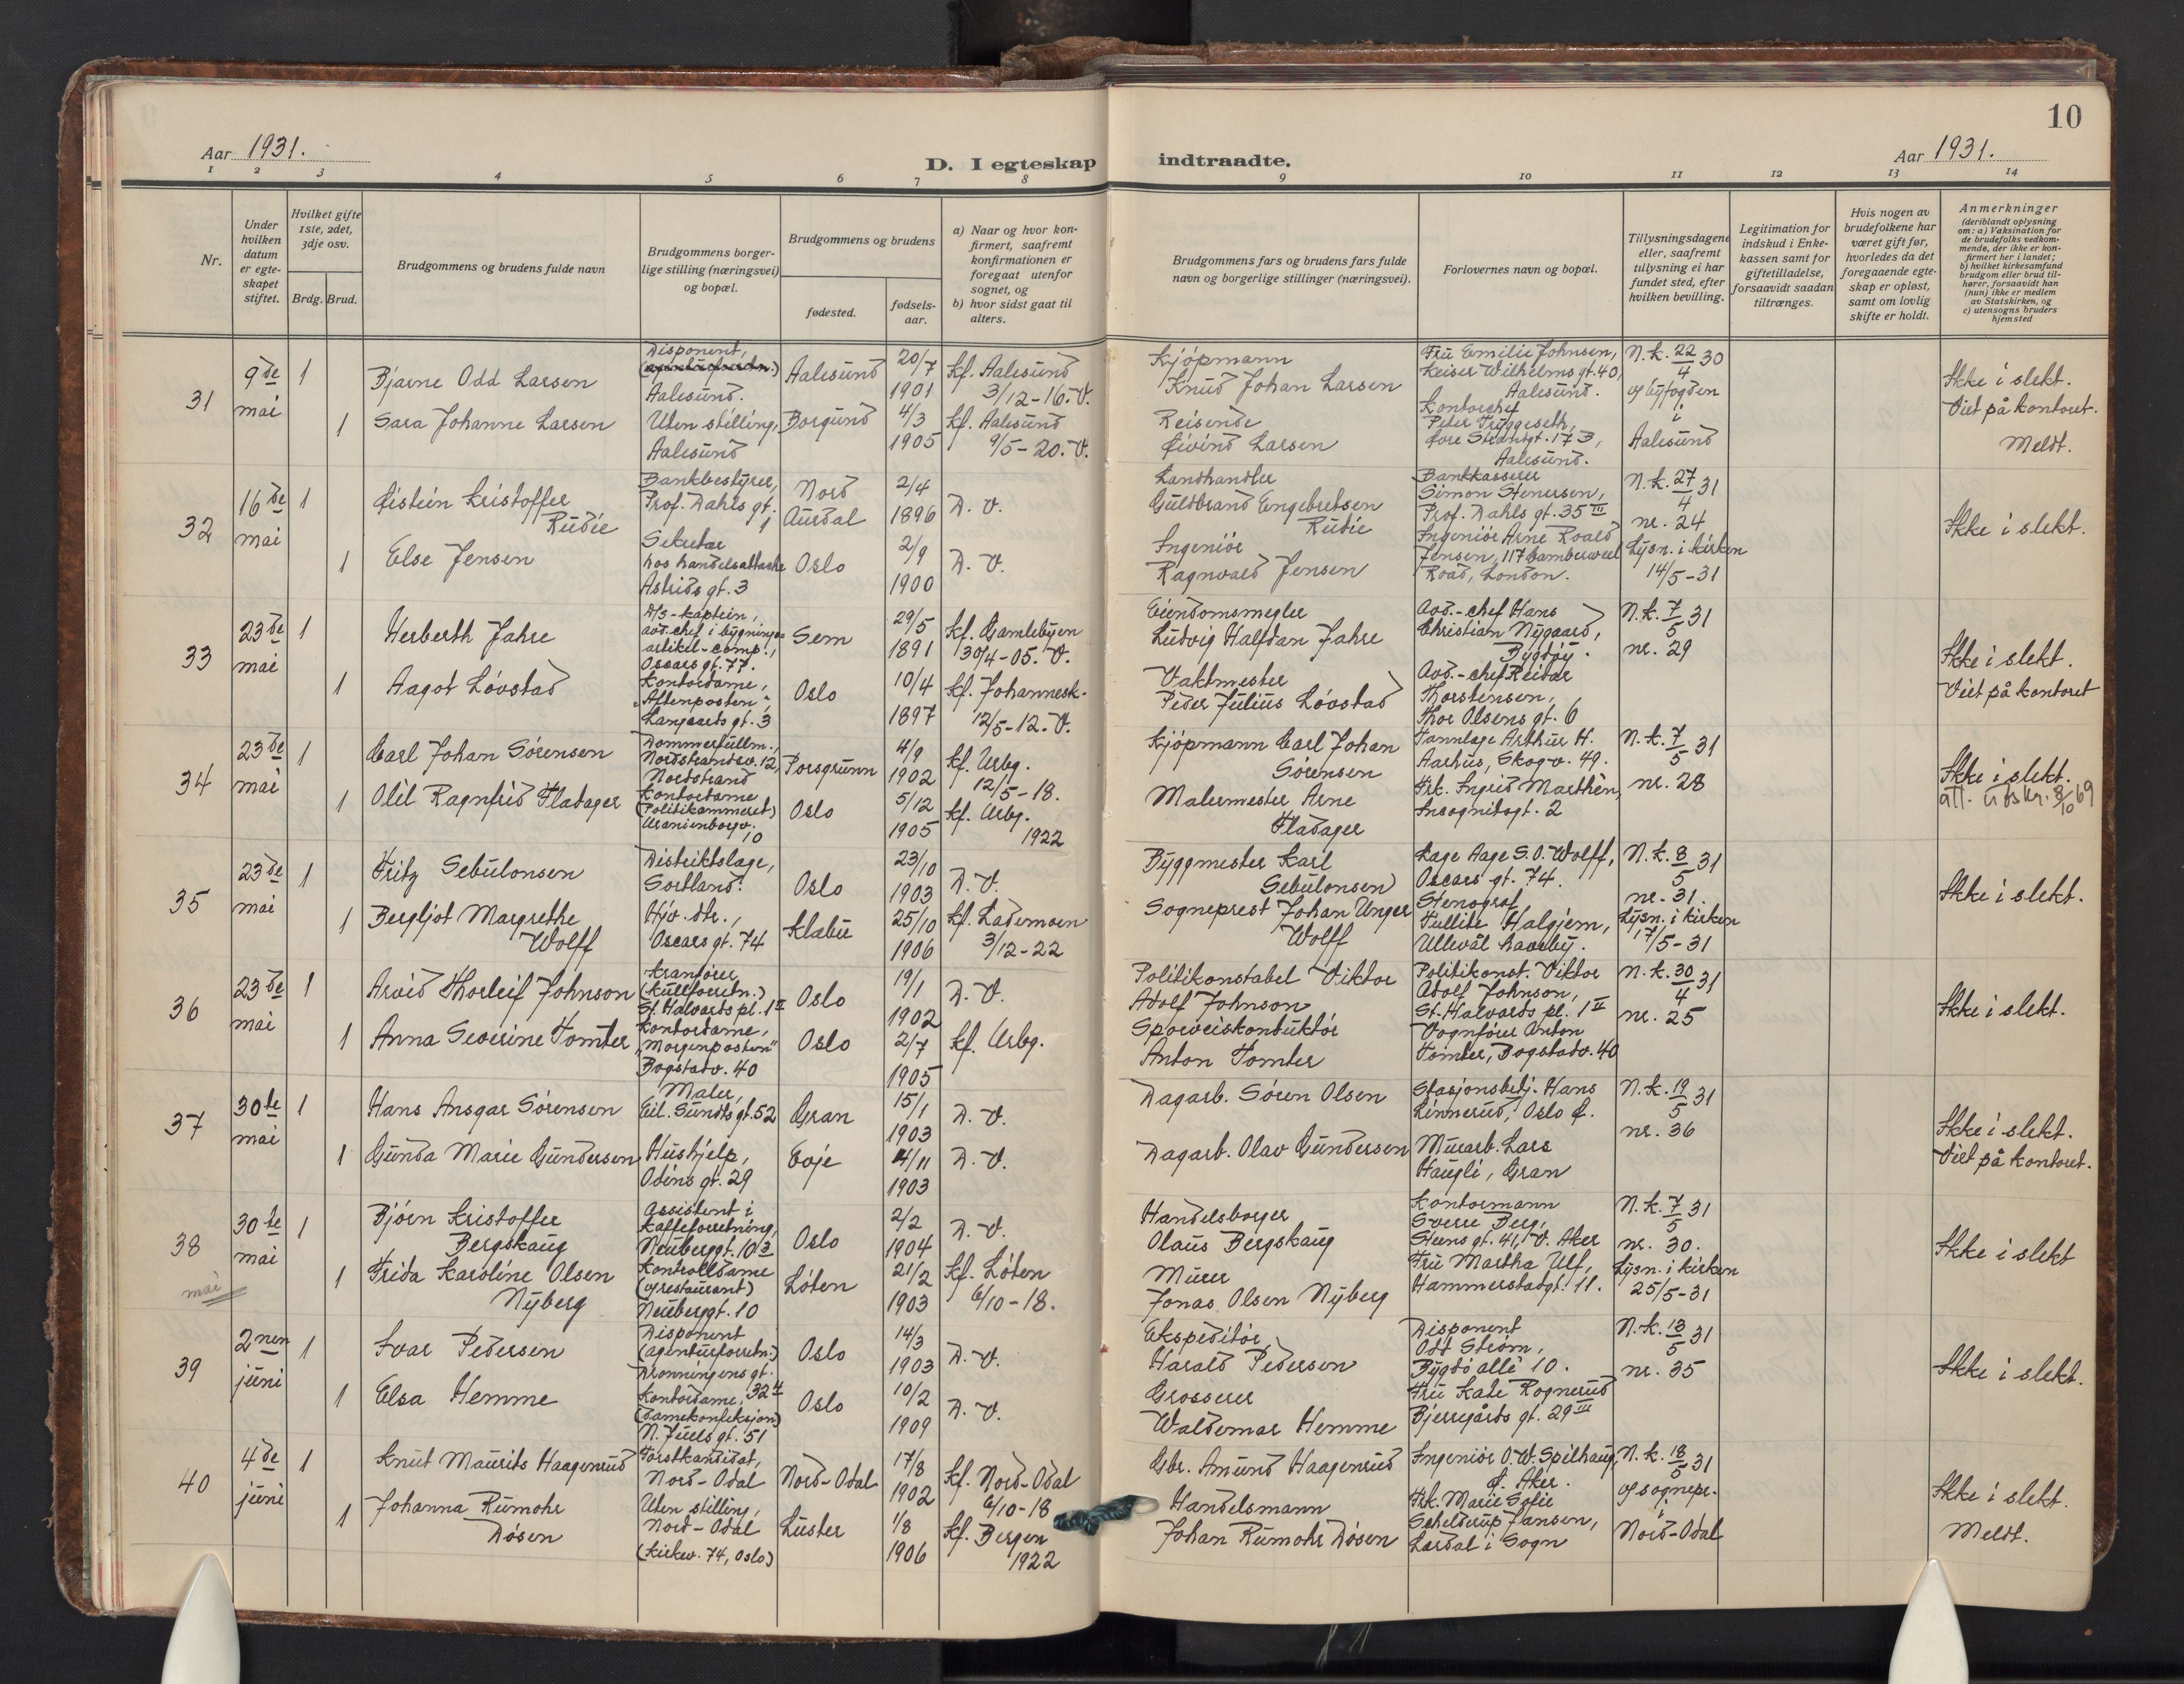 10
Aar 1931.
D. I egteskap indtraadte.
Aar 1931.
1 2 3 4 5 6 7 8 9 10 11 12 13 14
Nr.
Under hvilken datum er egteskapet stiftet.
Hvilket gifte 1ste, 2det, 3dje osv.
Brdg. Brud.
Brudgommens og brudens fulde navn
Brudgommens borgerlige stilling (næringsvei) og bopæl.
Brudgommens og brudens
fødested.
fødselsaar.
a) Naar og hvor konfirmert, saafremt konfirmationen er foregaat utenfor sognet, og
b) hvor sidst gaat til alters.
Brudgommens fars og brudens fars fulde navn og borgerlige stillinger (næringsvei).
Forlovernes navn og bopæl.
Tillysningsdagene eller, saafremt tillysning ei har fundet sted, efter hvilken bevilling.
Legitimation for indskud i Enkekassen samt for giftetilladelse, forsaavidt saadan tiltrænges.
Hvis nogen av brudefolkene har været gift før, hvorledes da det foregaaende egteskap er opløst, samt om lovlig skifte er holdt.
Anmerkninger
(deriblandt oplysning om: a) Vaksination for de brudefolks vedkommende, der ikke er konfirmert her i landet; b) hvilket kirkesamfund brudgom eller brud tilhører, forsaavidt han (hun) ikke er medlem av Statskirken, og c) utensogns bruders hjemsted
31
9de mai
1
Bjarne Odd Larsen
Disponent,
Aalesund.
Aalesund
20/7 1901
kf. Aalesund 3/12-16. V.
Kjøpmann
Knud Johan Larsen
Fru Emilie Johnsen,
Keiser Wilhelms gt. 40,
Aalesund.
N.k. 22/4 30
af byfogden i Aalesund
Ikke i slekt.
Viet på kontoret.
Meldt.
1
Sara Johanne Larsen
Uten stilling,
Aalesund
Borgund
4/3 1905
kf. Aalesund 9/5-20. V.
Reisende
Eivind Larsen
Kontorchef
Peter Tryggeseth,
Øvre Strandgt. 173,
Aalesund.
32
16de mai
1
Eistein Kristoffer Rudie
Bankbestyrer,
Prof. Dahls gt. 1
Nord Aurdal
2/4 1896
D. V.
Landhandler
Guldbrand Engebretsen Rudie
Bankkasserer
Simon Stenersen,
Prof. Dahls gt. 35 III
N.k. 27/4 31
nr. 24
Lysn. i kirken
14/5-31
Ikke i slekt.
1
Else Jensen
Sekretær
hos handelsattaché
Astrids gt. 3
Oslo
2/9 1900
D. V.
Ingeniør
Ragnvald Jensen
Ingeniør Arne Roald
Jensen, 117 Camberwell
Road, London.
33
23de mai
1
Herberth Jahre
D/S-kaptein,
avd.chef i bygningsartikel-comp.,
Oscars gt. 77.
Sem
29/5 1891
kf. Gamlebyen 30/4-05. V.
Eiendomsmegler
Ludvig Halfdan Jahre
Avd.-chef Hans
Christian Nygaard,
Bygdøy.
N.k. 7/5 31
nr. 29
Ikke i slekt.
Viet på kontoret
1
Aagot Løvstad
Kontordame,
"Aftenposten",
Langaards gt. 3
Oslo
10/4 1897
kf. Johannesk. 12/5-12. V.
Vaktmester
Peder Julius Løvstad
Avd.-chef Reidar
Thorstensen,
Thor Olsens gt. 6
34
23de mai
1
Carl Johan Sørensen
Dommerfullm.,
Nordstrandsv. 12,
Nordstrand
Porsgrunn
4/9 1902
kf. Urbg. 12/5-18.
Kjøpmann Carl Johan Sørensen
Tannlæge Arthur H.
Aarhus, Skog-v. 49.
N.k. 7/5 31
nr. 28
Ikke i slekt.
att. utskr. 8/10 69
1
Olil Ragnfrid Fladager
Kontordame
(Politikammeret)
Uranienborgv. 10
Oslo
5/12 1905
kf. Urbg. 1922
Malermester Arne Fladager
Frk. Ingrid Marthén,
Incognitogt. 2
35
23de mai
1
Fritz Sebulonsen
Distriktslæge,
Sortland.
Oslo
23/10 1903
D. V.
Byggmester Karl Sebulonsen
Læge Aage S.O. Wolff,
Oscars gt. 74.
N.k. 8/5 31
nr. 31.
Lysn. i kirken
17/5-31
Ikke i slekt.
1
Bergljot Margrethe Wolff
Hjv. dtr.,
Oscars gt. 74
Klæbu
25/10 1906
kf. Lademoen 3/12-22
Sogneprest Johan Unger Wolff
Stenograf
Tullik Halgjem,
Ullevål haveby.
36
23de mai
1
Arvid Thorleif Johnson
Kranfører
(kullforretn.)
St. Halvards pl. 1 II
Oslo
19/1 1902
D. V.
Politikonstabel Viktor
Adolf Johnson
Politikonst. Viktor
Adolf Johnson,
St. Halvards pl. 1 II
N.k. 30/4 31
nr. 25
Ikke i slekt.
1
Anna Severine Tomter
Kontordame,
"Morgenposten"
Bogstadv. 40
Oslo
2/7 1905
kf. Urbg.
Sporveiskonduktør
Anton Tomter
Vognfører Anton
Tomter, Bogstadv. 40
37
30te mai
1
Hans Ansgar Sørensen
Maler,
Eil. Sundts gt. 52
Gran
15/1 1903
D. V.
Dagarb. Søren Olsen
Stasjonsbetj. Hans
Linnerud, Oslo Ø.
N.k. 19/5 31
nr. 36
Ikke i slekt.
Viet på kontoret.
1
Gunda Marie Gundersen
Hushjelp,
Odins gt. 29
Evje
4/11 1903
D. V.
Dagarb. Olav Gundersen
Murarb. Lars
Haugli, Gran
38
30te mai
1
Bjørn Kristoffer Bergskaug
Assistent i
kaffeforretning,
Neuberggt. 10 3
Oslo
2/2 1904
D. V.
Handelsborger
Olaus Bergskaug
Kontormann
Sverre Berg,
Stens gt. 41, V. Aker
N.k. 7/5 31
nr. 30.
Lysn. i kirken
25/5-31
Ikke i slekt
mai
1
Frida Karoline Olsen Nyberg
Kontrolldame
(i restaurant)
Neuberggt. 10
Løten
21/2 1903
kf. Løten 6/10-18.
Murer
Jonas Olsen Nyberg
Fru Martha Ulf,
Hammerstadgt. 11.
39
2nen juni
1
Ivar Pedersen
Disponent
(agenturforretn.)
Dronningens gt. 32 4
Oslo
14/3 1903
D. V.
Ekspeditør
Harald Pedersen
Disponent
Odd Strøm,
Bygdø allé 10.
N.k. 13/5 31
nr. 35
Ikke i slekt.
1
Elsa Hemme
Kontordame,
(damekonfeksjon)
N. Juels gt. 51
Oslo
10/2 1909
D. V.
Grosserer
Waldemar Hemme
Fru Kate Rognerud
Bjerregårds gt. 29 III
40
4de juni
1
Knut Maurits Haagenrud
Forstkandidat,
Nord-Odal
Nord-Odal
17/8 1902
kf. Nord-Odal 6/10-18
Gbr. Amund Haagenrud
Ingeniør O.W. Spilhaug,
Ø. Aker.
N.k. 18/5 31
af sognepr. i Nord-Odal
Ikke i slekt.
Meldt.
1
Johanna Rumohr Døsen
Uten stilling,
Nord-Odal
(Kirkev. 74, Oslo)
Luster
1/8 1906
kf. Bergen 1922
Handelsmann
Johan Rumohr Døsen
Frk. Marie Sofie
Schelderup Jansen,
Lærdal i Sogn